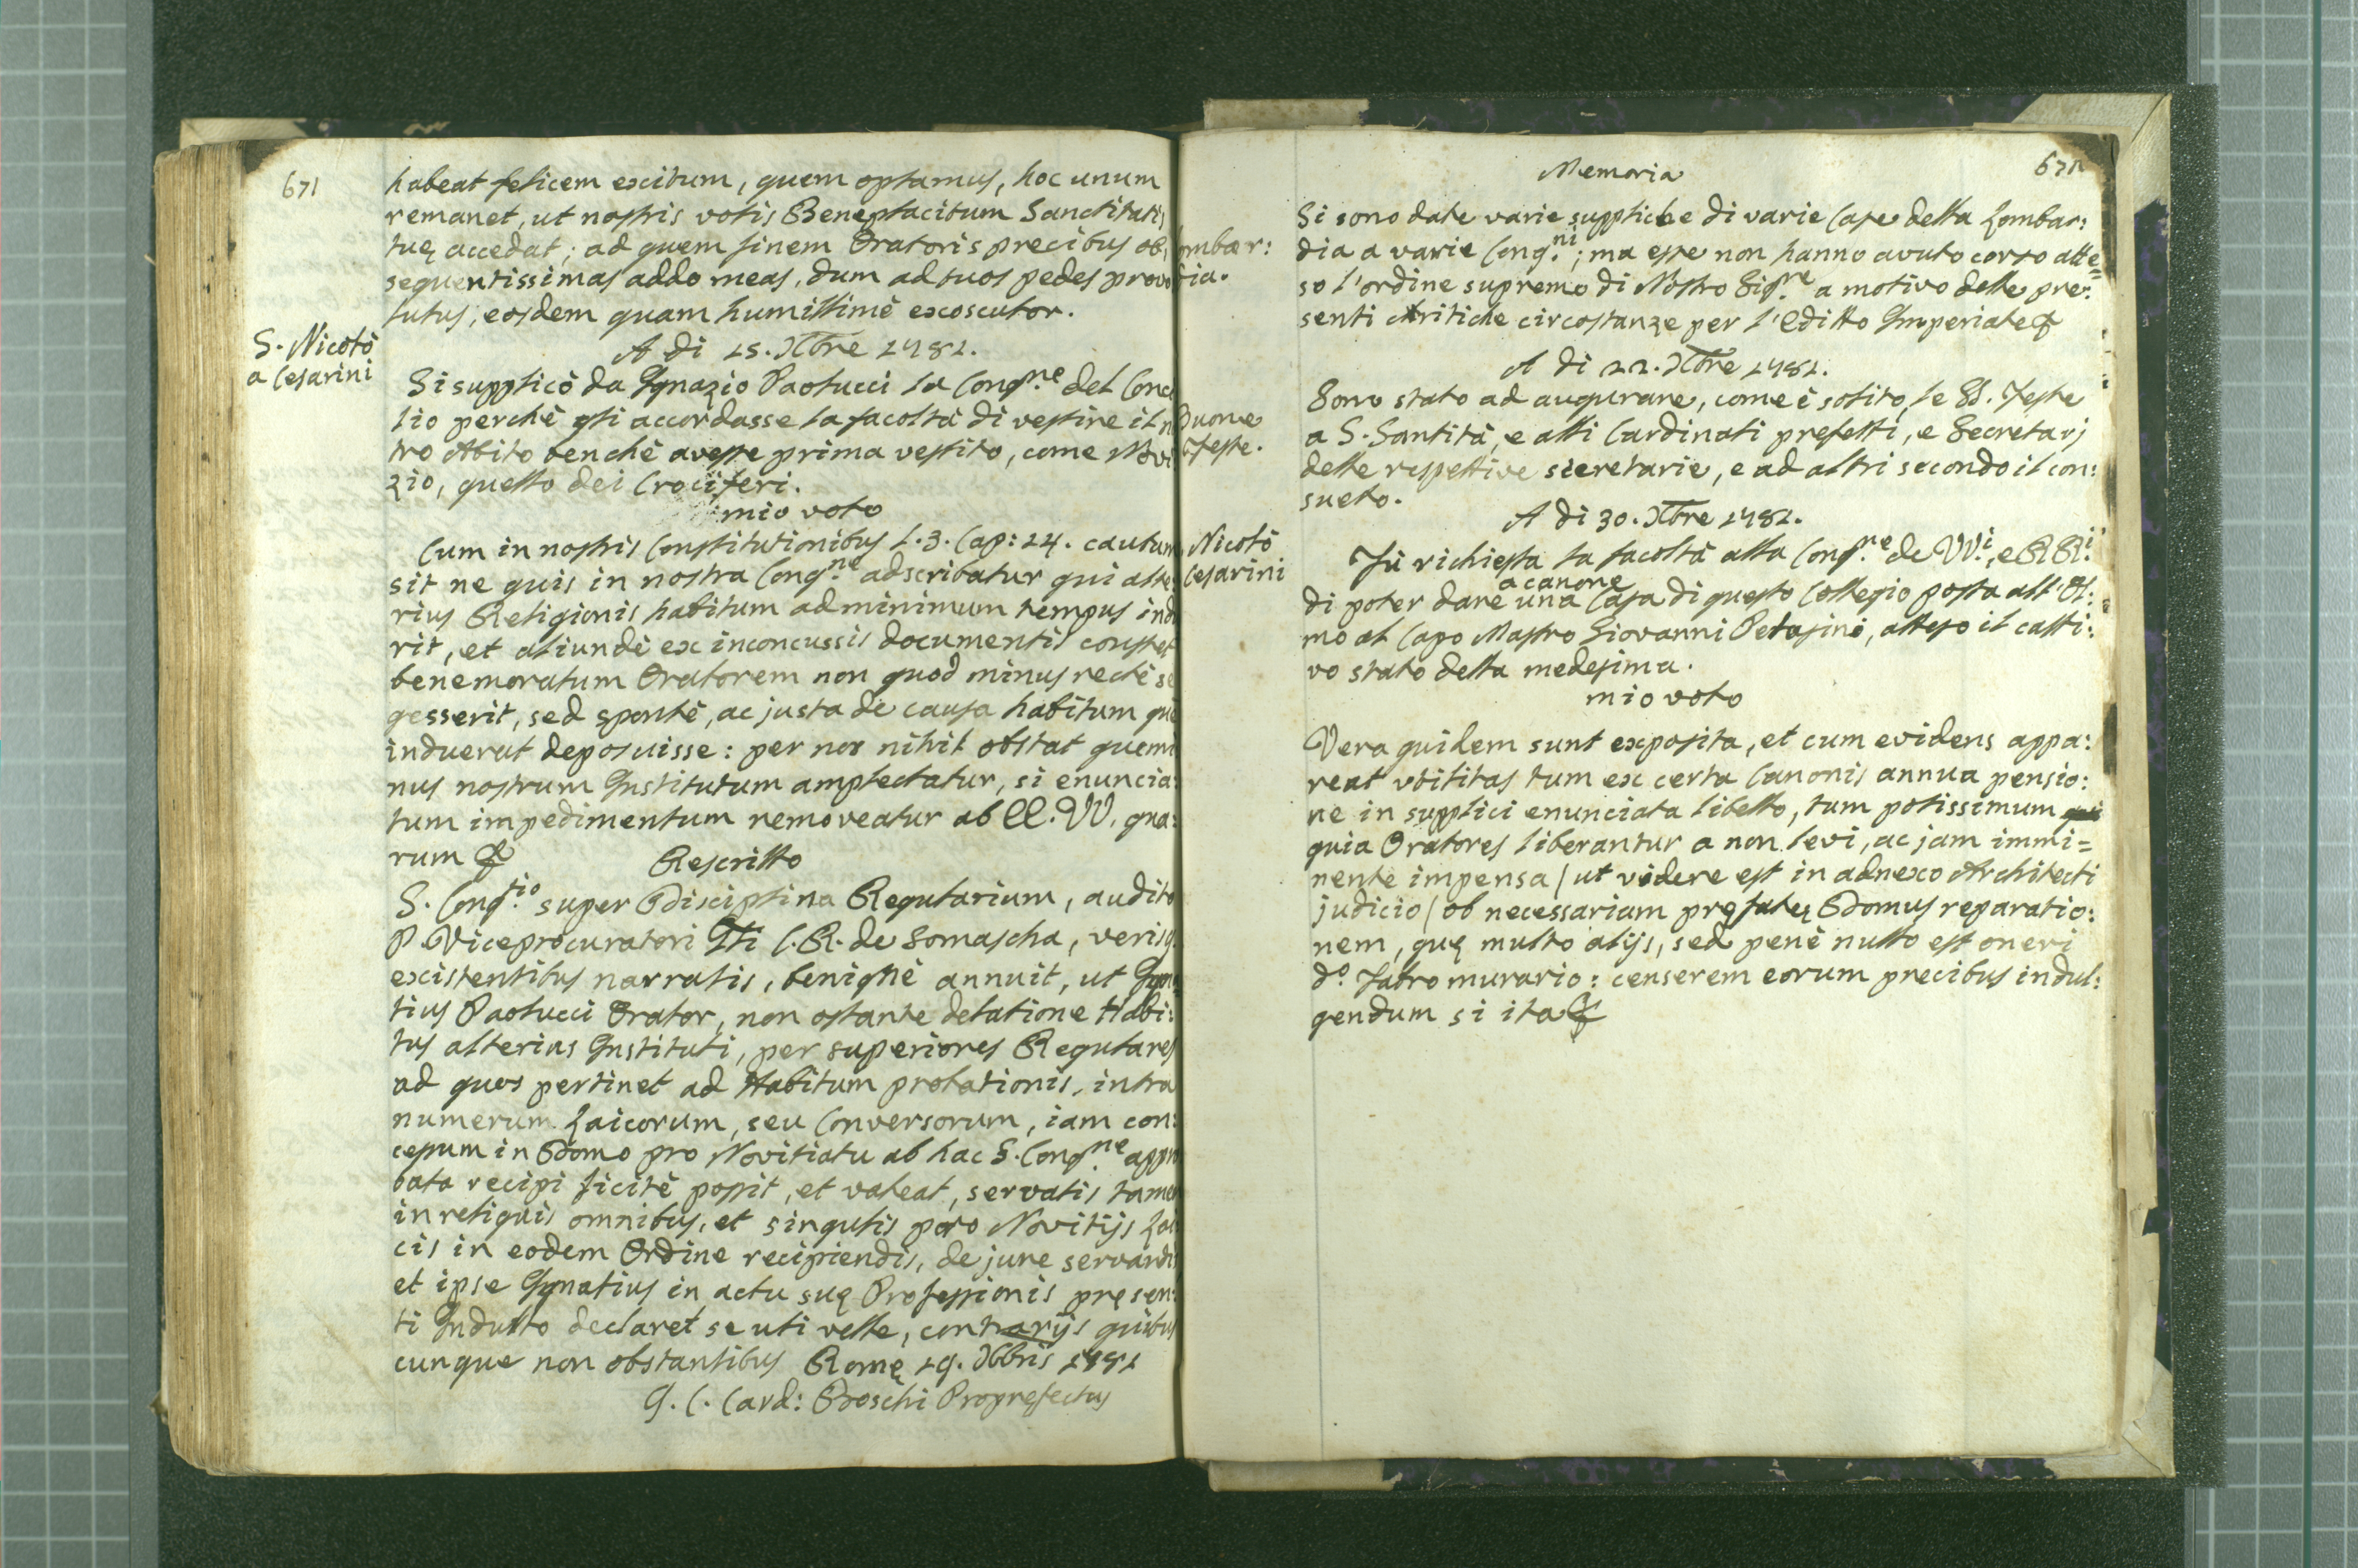 671
habeat felicem exitum, quem optamus, hoc unum
remanet, ut nostris votis Beneplacitum Sanctitatis
tuę accedat; ad quem finem Oratoris precibus ob,
sequentissimas addo meas, dum ad tuos pedes provo
lutus, eosdem quam humillimè exosculor.
S. Nicolò
a Cesarini
A di 15. Xbre 1781.
Si supplicò da Ignazio Paolucci la Congne. del Conci
lio perchè gli accordasse la facoltà di vestire il n
tro Abito benchè avesse prima vestito, come Novi
zio, quello dei Crociferi.
mio voto
Cum in nostris Constitutionibus L. 3. Cap: 24. cautum
sit ne quis in nostra Congne. adscribatur qui alte
rius Religionis habitum ad minimum tempus indu
rit, et aliundè ex inconcussis documentis constet
benemoratum Oratorem non quod minus rectè se
gesserit, sed spontè, ac justa de causa habitum quē
induerat deposuisse: per nos nihil obstat quomi
nus nostrum Institutum amplectatur, si enuncia:
tum impedimentum removeatur ab EE. VV. qua:
rum &
Rescritto
S. Congtio. super Disciplina Regularium, audito
P. Viceprocuratori Gli C. R. de Somascha, verisq.
existentibus narratis, benignè annuit, ut Igna:
tius Paolucci Orator, non ostante delatione Habi:
tus alterius Instituti, per superiores Regulares
ad quos pertinet ad Habitum probationis, intra
numerum Laicorum, seu Conversorum, iam con:
cessum in Domo pro Novitiatu ab hac S. Congne. appro
bata recipi licitè possit, et valeat, servatis tamen
in reliquis omnibus, et singulis pro Novitijs Lai
cis in eodem Ordine recipiendis, de jure servandis
et ipse Ignatius in actu suę Professionis pręsen:
ti Indulto declaret se uti velle, contrarijs quibus
cunque non obstantibus Romę 19. Xbris 1781
G. C. Card: Boschi Proprefectus
Memoria
672
ombar:
dia.
Si sono date varie suppliche di varie Case della Lombar:
dia a varie Congni.; ma esse non hanno avuto corso atte=
so l'ordine supremo di Nostro Sigre. a motivo delle pre:
senti critiche circostanze per l'Editto Imperiale &
A di 22. Xbre 1781.
Buone
Feste.
Sono stato ad augurare, come è solito, le SS. Feste
a S. Santità, e alli Cardinali prefetti, e Secretarj
delle respettive secretarie, e ad altri secondo il con:
sueto.
A di 30. Xbre 1781.
Nicolò
Cesarini
Fù richiesta la facoltà alla Congne. de VVi., e RRi.
di poter dare a canone una Casa di questo Collegio posta all'Ol:
mo al Capo Mastro Giovanni Petasini, atteso il catti:
vo stato della medesima.
mio voto
Vera quidem sunt exposita, et cum evidens appa:
reat utilitas tum ex certa Canonis annua pensio:
ne in supplici enunciata libello, tum potissimum
quia Oratores liberantur a non levi, ac jam immi=
nente impensa / ut videre est in adnexo Architecti
judicio / ob necessariam pręfatę Domus reparatio:
nem, quę multo alijs, sed penè nullo est oneri
do. Fabro murario: censerem eorum precibus indul:
gendum si ita &